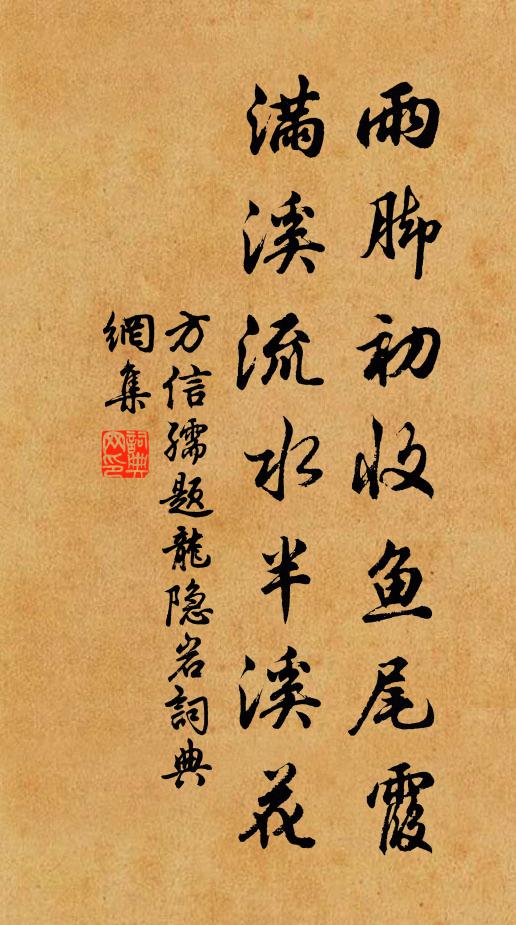 雨脚初收鱼尾霞
满溪流水半溪花
方信孺题龍隐岩詞典
網集
詞典
网印